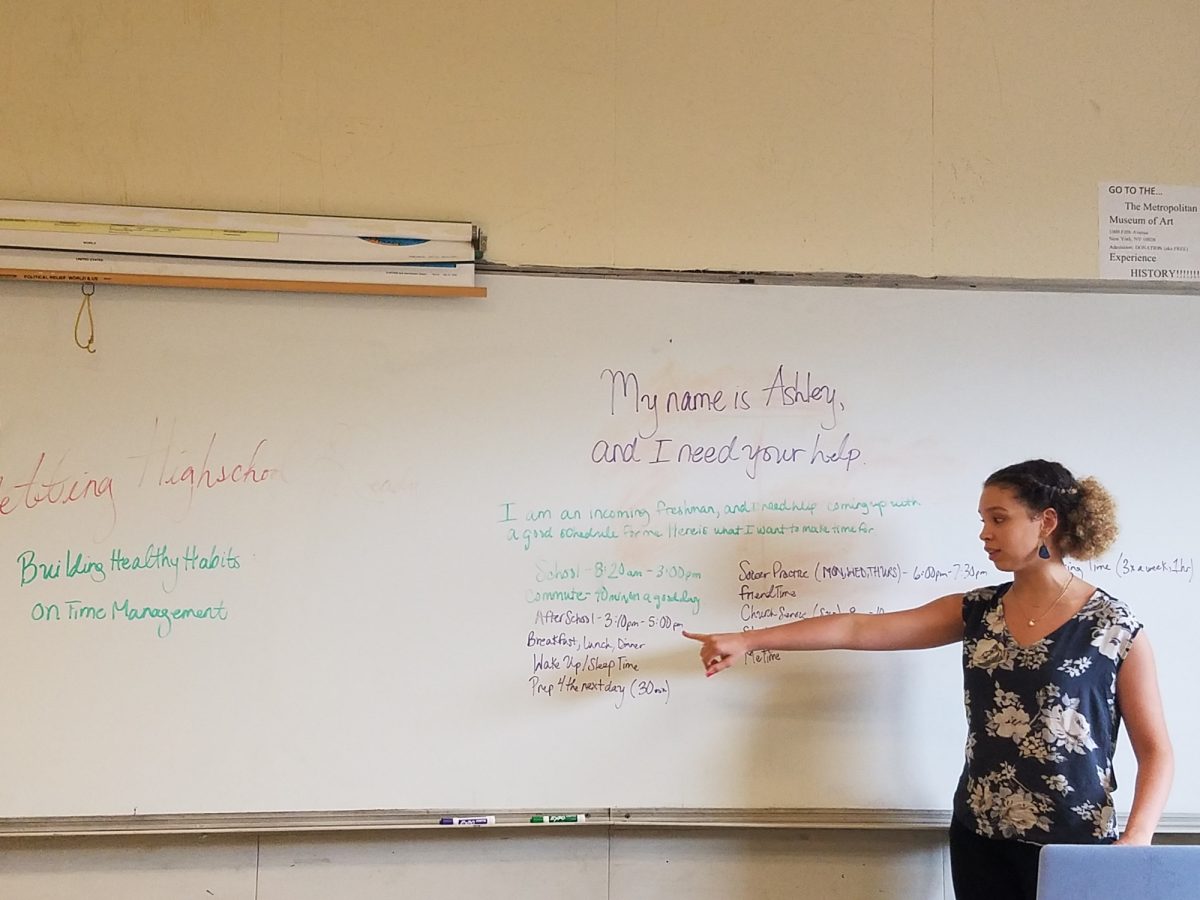 GO TO THE...
The Metropolitan
Museum of Art
1000 Fifth Avenue
New York, NY 10028
Admission: DONATION (aka FREE)
Experience
HISTORY!!!!!!!!
WORLD
UNITED STATES
POLITICAL RELIEF WORLD & US
My name is Ashley,
and I need your help.
etting Highschoo
Building Healthy Habits
on Time Management
I am an incoming freshman, and I need help coming up with
a good schedule for me Here is what I want to make time for
School - 8:20am - 3:00pm
Commute - 90min on a good day
After School - 3:10pm - 5:00pm
Breakfast, Lunch, Dinner
Wake Up/Sleep Time
Prep 4 the next day (30min)
Soccer Practice (MON, WED, THURS) - 6:00pm-7:30pm
Friend Time
Church Service
Me Time
Time (3x a week, 1hr)
EXPO
EXPO